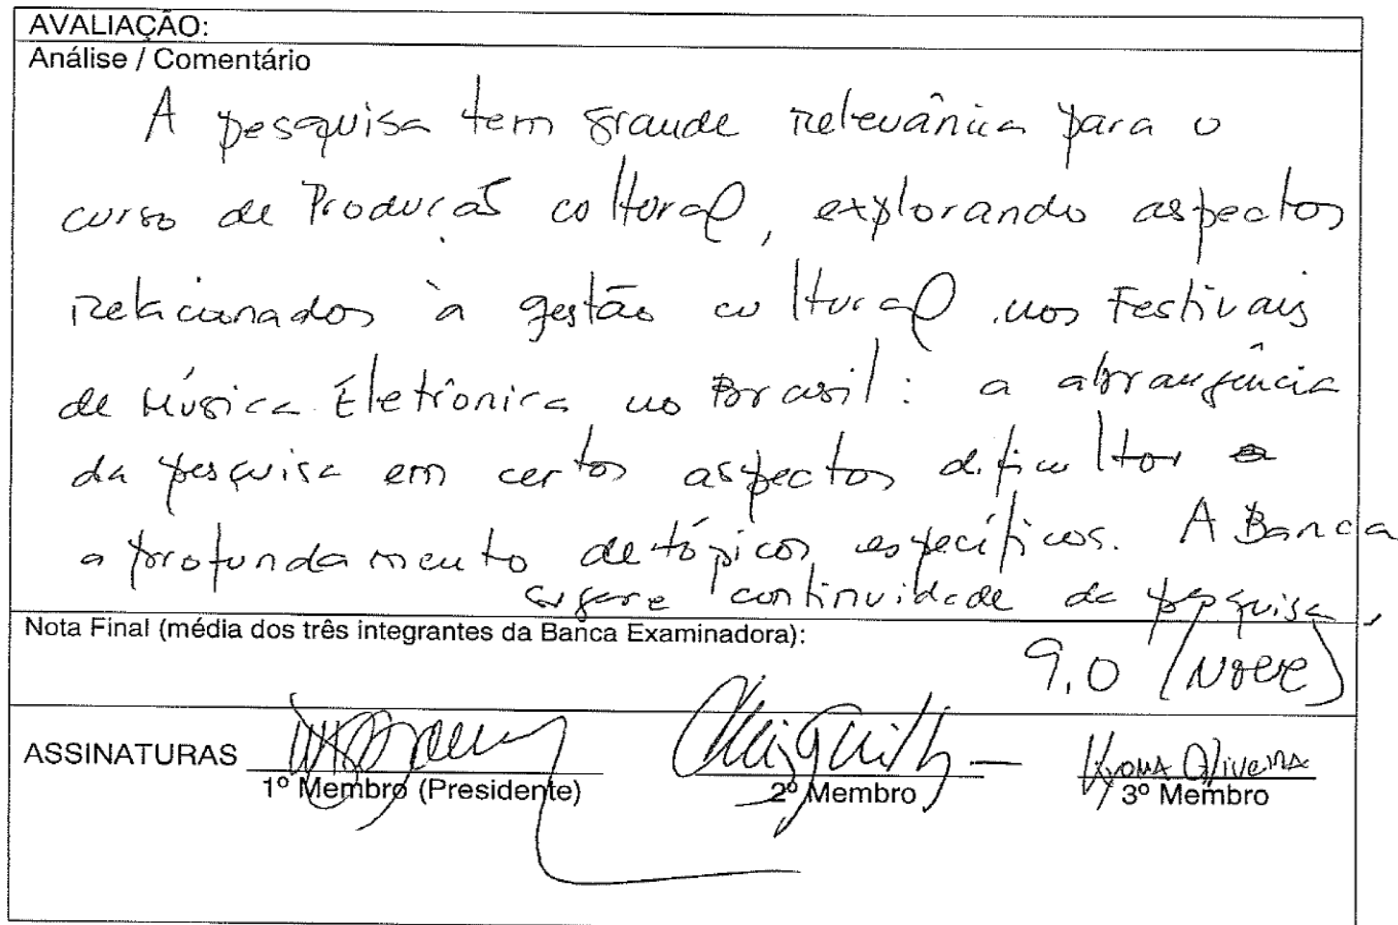 AVALIAÇÃO:
Análise / Comentário
A pesquisa tem grande relevância para o
curso de Produção cultural, explorando aspectos
relacionados à gestão cultural nos Festivais
de Música Eletrônica no Brasil: a abrangência
da pesquisa em certos aspectos dificultou o
aprofundamento de tópicos específicos. A Banca
sugere continuidade da pesquisa.
Nota Final (média dos três integrantes da Banca Examinadora):
9,0 (Nove)
ASSINATURAS
Oliveira
1º Membro (Presidente) 2º Membro 3º Membro